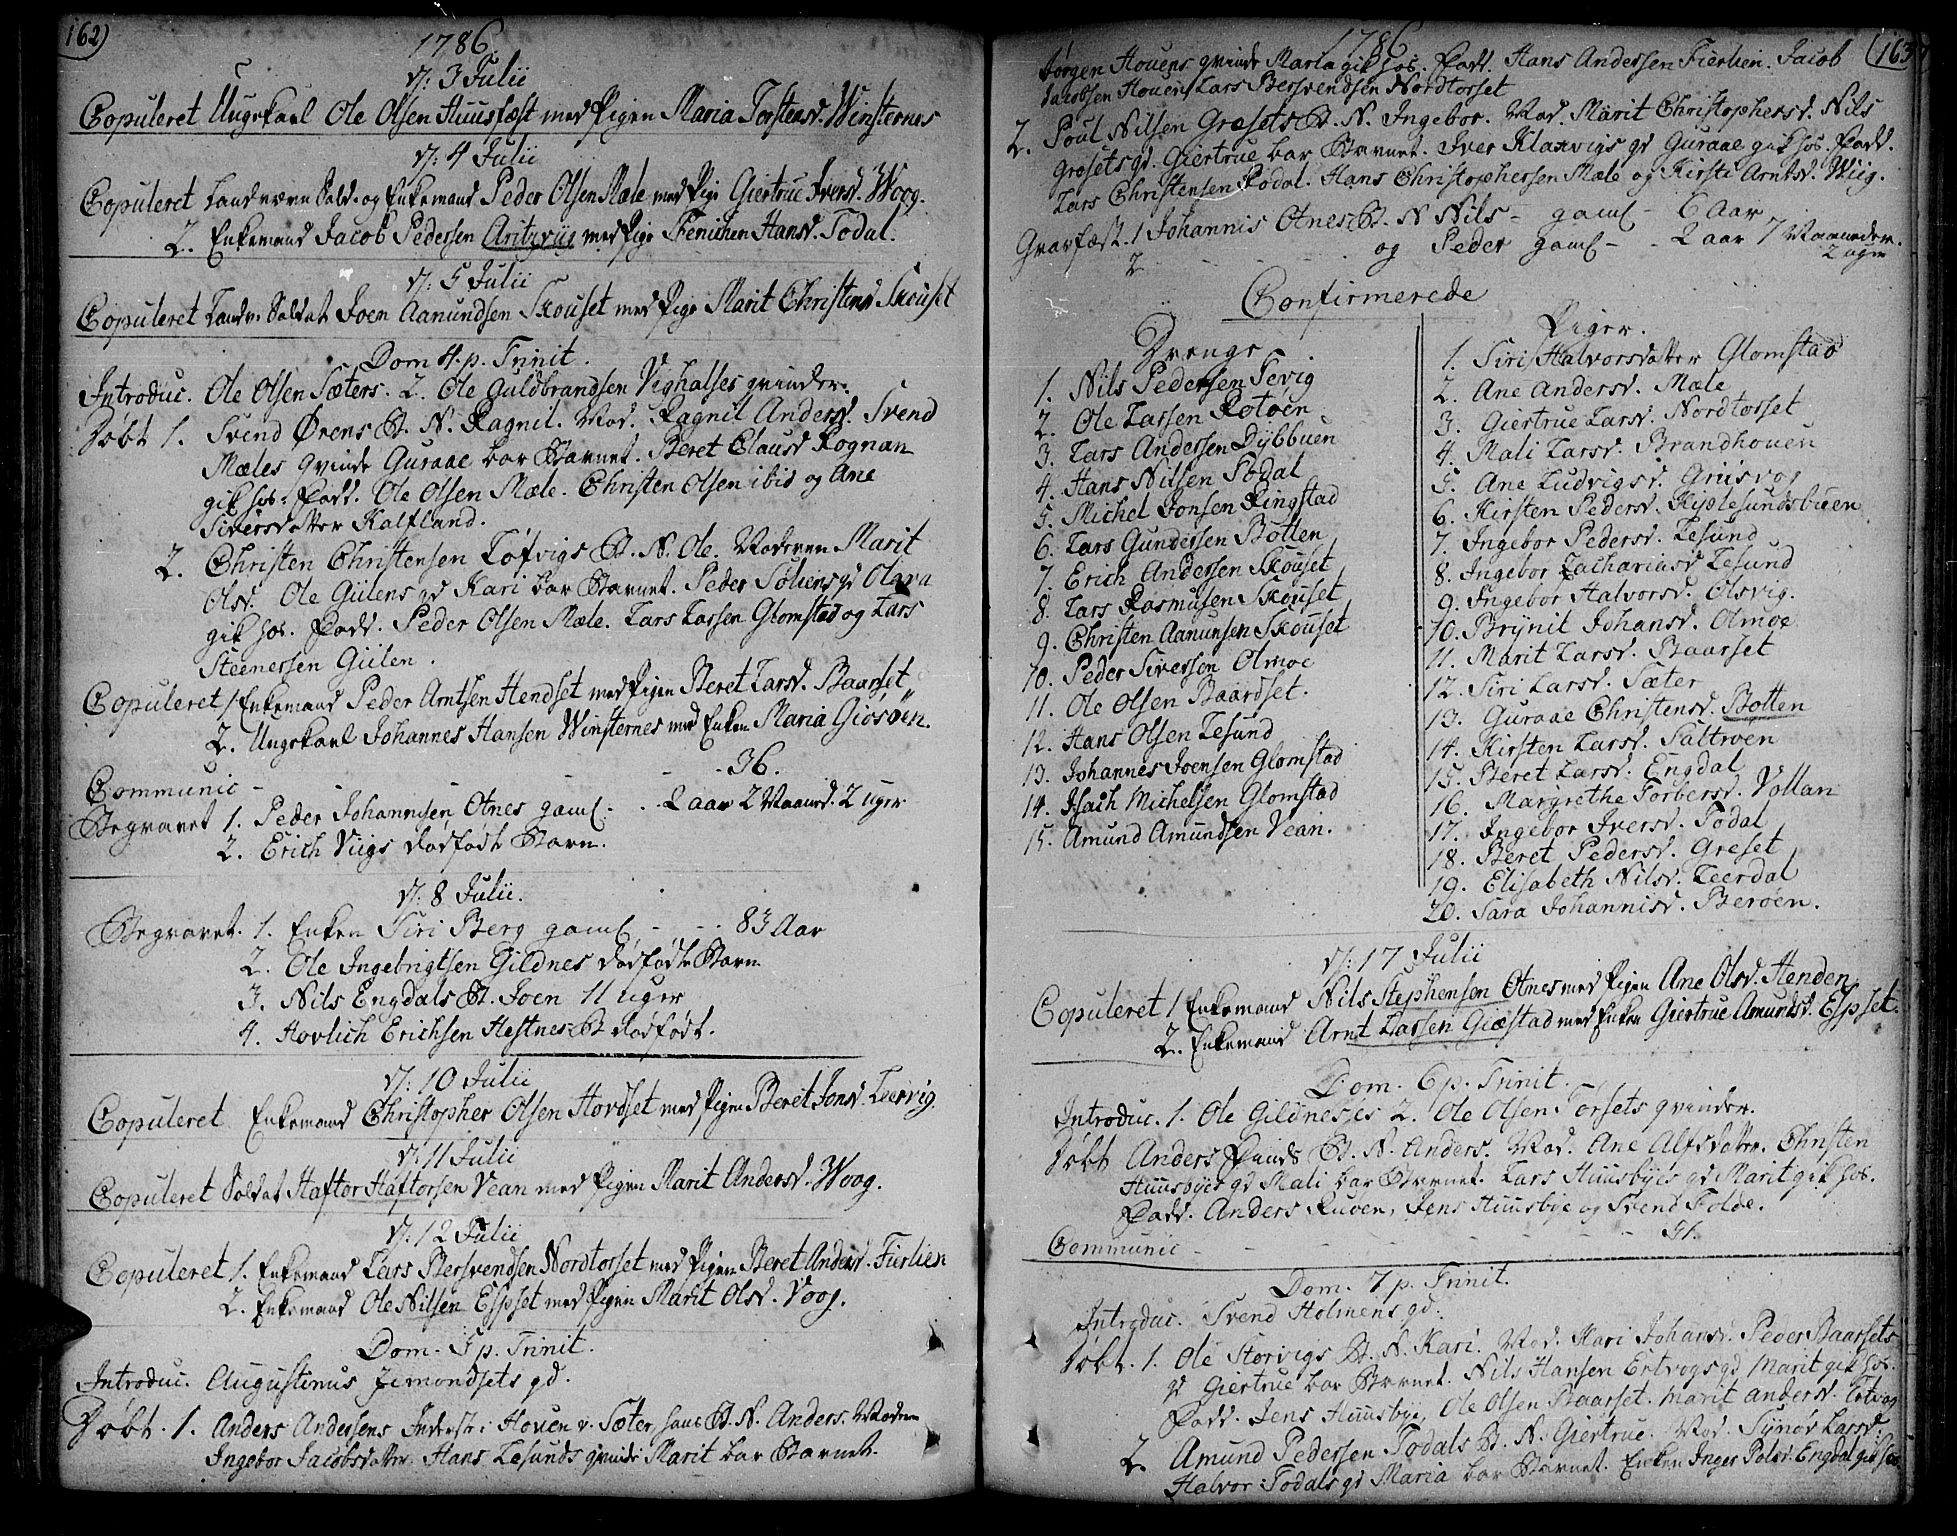 162)
1786.
d: 3 Julii
Copuleret Ungekarl Ole Olsen Huusfæst med Pigen Maria Torstensd. Winsternes
d: 4 Julii
Copuleret Landværn Sold. og Enkemand Peder Olsen Mæle med Pige Giertrue Iversd. Woog.
2. Enkemand Jacob Pedersen Aritzviig med Pige Fenichen Hansd. Todal.
d: 5 Julii
Copuleret Landv. Soldat Joen Aamundsen Skouset med Pige Marit Christensd Skouset
Dom 4. p. Trinit.
Introduc. Ole Olsen Sæters. 2. Ole Guldbrandsen Vighalses qvinder.
Døbt 1. Svend Ørens B. N. Ragnil. Mod. Ragnil Andersd. Svend
Mæles qvinde Guraae bar Barnet. Beret Clausd Rognan
gik hos. Fadd. Ole Olsen Mæle. Christen Olsen ibid og Ane
Siversdatter Kalfland.
2. Christen Christensen Løfvigs B. N. Ole. Moderen Marit
Olsd. Ole Giilens qd Kari bar Barnet. Peder Søliens qd Olava
gik hos. Fadd. Peder Olsen Mæle. Lars Larsen Glomstad og Lars
Steenersen Giilen.
Copuleret 1 Enkemand Peder Arntsen Hendset med Pigen Beret Larsd. Baarset
2. Ungekarl Johannes Hansen Winsternes med Enken Maria Giøsøen.
Communic - - - 36.
Begravet 1. Peder Johannsen Otnes gaml - - 2 aar 2 Maaned. 2 uger
2. Erich Viigs dødfødt Barn.
d: 8 Julii.
Begravet. 1. Enken Siri Berg gaml - - 83 Aar
2. Ole Ingebrigtsen Gildnes dødfødte Barn
3. Nils Engdals B. Joen 11 uger
4. Hovlich Erichsen Hestnes B dødfødt.
d: 10 Julii
Copuleret Enkemand Christopher Olsen Hovdset med Pigen Beret Jonsd. Leervig.
d: 11 Julii
Copuleret Soldat Haftor Haftorsen Vean med Pigen Marit Andersd. Woog.
d: 12 Julii
Copuleret 1. Enkemand Lars Bersvendsen Nordtorset med Pigen Beret Andersd. Fiirlien
2. Enkemand Ole Nilsen Espset med Pigen Marit Olsd. Voog.
Dom. 5 p. Trinit.
Introduc. Augustinus Jemondsets qd.
Døbt. 1. Anders Andersens Inderst i Houen v. Sæter hans B. N. Anders. Modren
Ingebor Jacobsdatter. Hans Lesunds qvinde Marit bar Barnet.
1786
163
Jørgen Houens qvinde Maria gik hos. Fadd. Hans Andersen Fierlien. Jacob
Jacobsen Houen, Lars Bersvendsen Nordtorset
2. Poul Nilsen Græsets B. N. Ingebor. Mod. Marit Christophersd. Nils
Græsets qd. Giertrue bar Barnet. Iver Klaxvigs qd Guraae gik hos. Fadd.
Lars Christensen Fodal. Hans Christophersen Mæle og Kirsti Arntsd. Wiig.
Gravfæst. 1 Johannis Otnes B. N Nils - gaml - 6 Aar
2 - - - og Peder gaml - - 2 aar 7 Maaneder.
2 uger
Confirmerede
Drenge
1. Nils Pedersen Sevig
2. Ole Larsen Rotøen
3. Lars Andersen Dybbuen
4. Hans Nilsen Fodal
5. Michel Jonsen Ringstad
6. Lars Gundersen Botten
7. Erich Andersen Skouset
8. Lars Rasmusen Skouset
9. Christen Aamunsen Skouset
10. Peder Siversen Olmoe
11. Ole Olsen Baardset.
12. Hans Olsen Lesund
13. Johannes Joensen Glomstad
14. Isach Michelsen Glomstad
15. Amund Amundsen Vean.
Piger.
1. Siri Halvorsdatter Glomstad
2. Ane Andersd. Mæle
3. Giertrue Larsd. Nordtorset
4. Mali Larsd. Brandhouen
5. Ane Ludvigsd. Griisvog
6. Kirsten Pedersd. Kiølesundsbuen
7. Ingebor Pedersd. Lesund
8. Ingebor Zachariasd Lesund
9. Ingebor Halvorsd. Olsvig.
10. Brynit Johansd. Olmoe
11. Marit Larsd. Baarset
12. Siri Larsd. Sæter
13. Guraae Christensd. Botten
14. Kirsten Larsd. Saltrøen
15. Beret Larsd. Engdal
16. Margrethe Torbersd. Vollan
17. Ingebor Iversd. Todal
18. Beret Pedersd. Greset
19. Elisabeth Nilsd. Leerdal
20. Sara Johannisd. Berøen.
d: 17 Julii
Copuleret 1 Enkemand Nils Stephensen Otnes med Pigen Ane Olsd. Henden
2. Enkemand Arnt Larsen Giæstad med Enken Giertrue Amundsd. Espset.
Dom. 6 p. Trinit.
Introduc. 1. Ole Gildneses 2. Ole Olsen Torsets qvinder.
Døbt Anders Funds B. N. Anders. Mod. Ane Alfsdatter. Christen
Huusbyes qd Mali bar Barnet. Lars Huusbyes qd Marit gik hos.
Fadd. Anders Ruøen, Jens Huusbye og Svend Folde.
Communic - - - - - - 51.
Dom. 7 p. Trinit.
Introduc. Svend Holmens qd.
Døbt. 1. Ole Storvigs B. N. Kari. Mod. Kari Johansd. Peder Baarsets
qd Giertrue bar Barnet. Nils Hansen Ertvogs qd Marit gik hos.
Fadd. Jens Huusbye, Ole Olsen Baarset. Marit Andersd. Ertvog
2. Amund Pedersen Todals B. N. Giertrue. Mod. Synøv Larsd.
Halvor Todals qd Maria bar Barnet. Enken Inger Polsd. Engdal gik hos